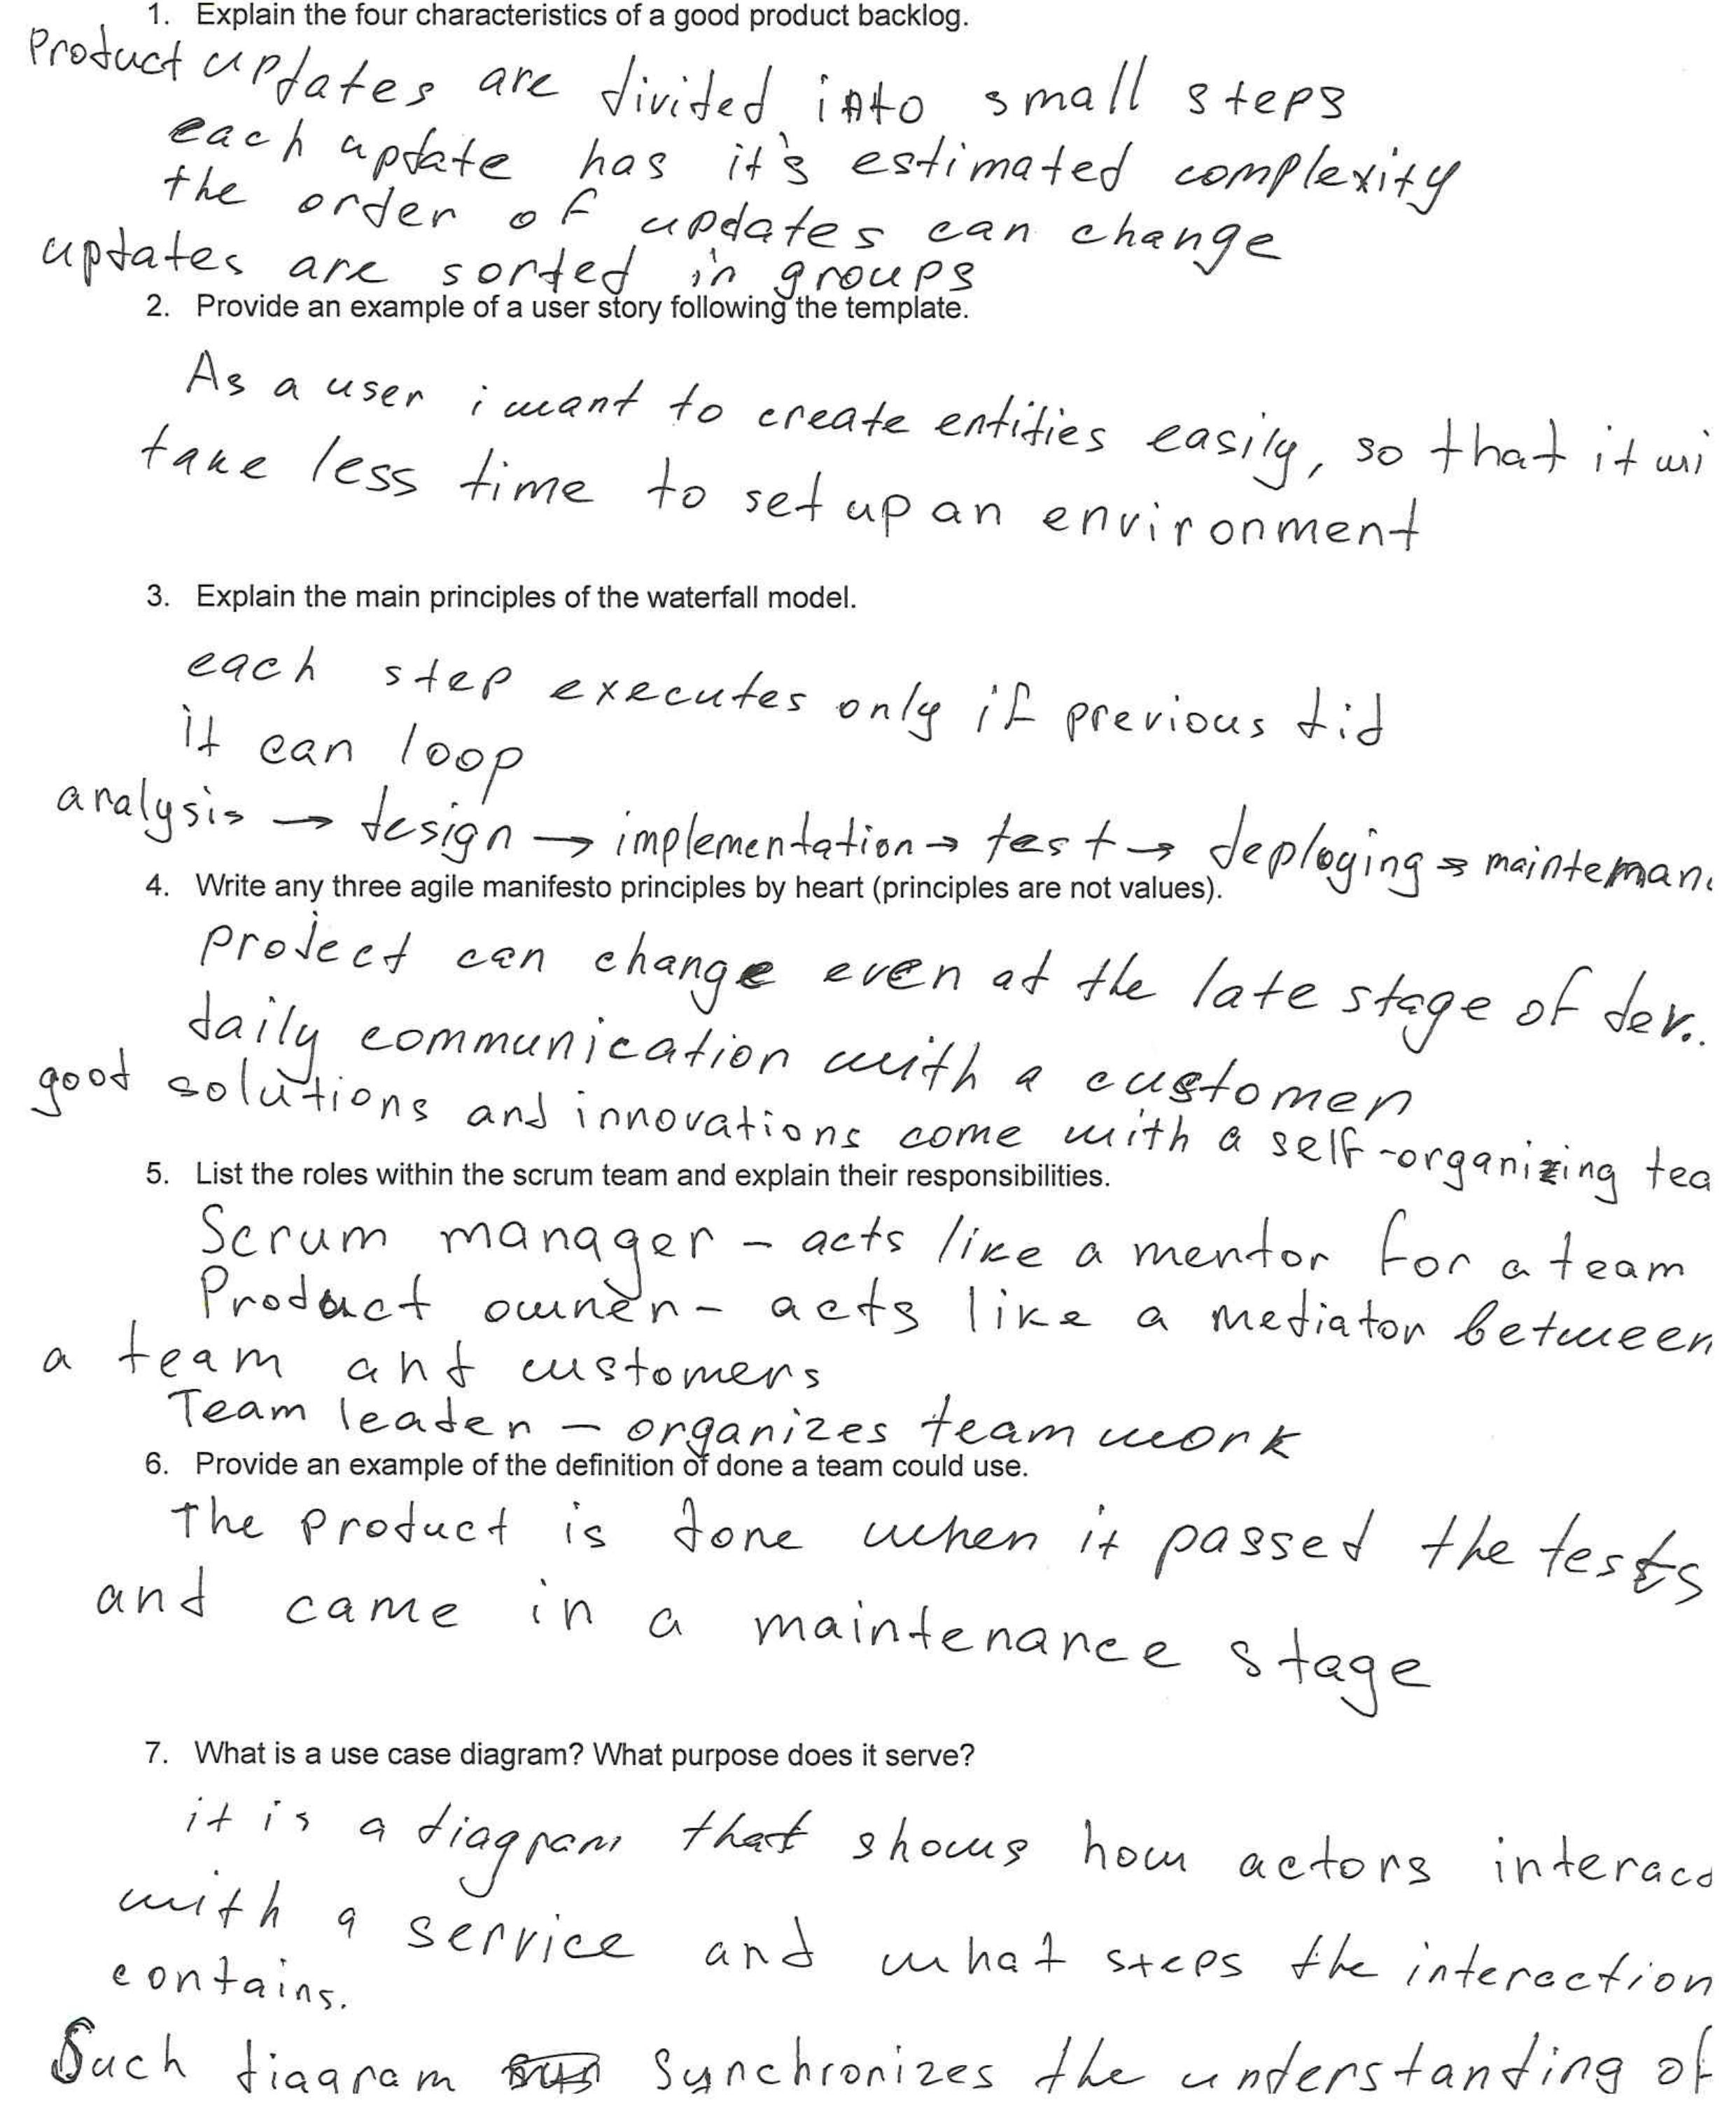 1. Explain the four characteristics of a good product backlog.
Product updates are divided into small steps
each update has it's estimated complexity
the order of updates can change
updates are sorted in groups
2. Provide an example of a user story following the template.
As a user i want to create entities easily, so that it wi
take less time to set up an environment
3. Explain the main principles of the waterfall model.
each step executes only if previous did
it can loop
analysis → design → implementation → test → deploying → maintenan
4. Write any three agile manifesto principles by heart (principles are not values).
Project can change even at the late stage of dev..
daily communication with a customer
good solutions and innovations come with a self-organizing tea
5. List the roles within the scrum team and explain their responsibilities.
Scrum manager - acts like a mentor for a team
Product owner - acts like a mediator between
a team and customers
Team leader - organizes team work
6. Provide an example of the definition of done a team could use.
The product is done when it passed the tests
and came in a maintenance stage
7. What is a use case diagram? What purpose does it serve?
it is a diagram that shows how actors interac
with a service and what steps the interaction
contains.
Such diagram synchronizes the understanding of